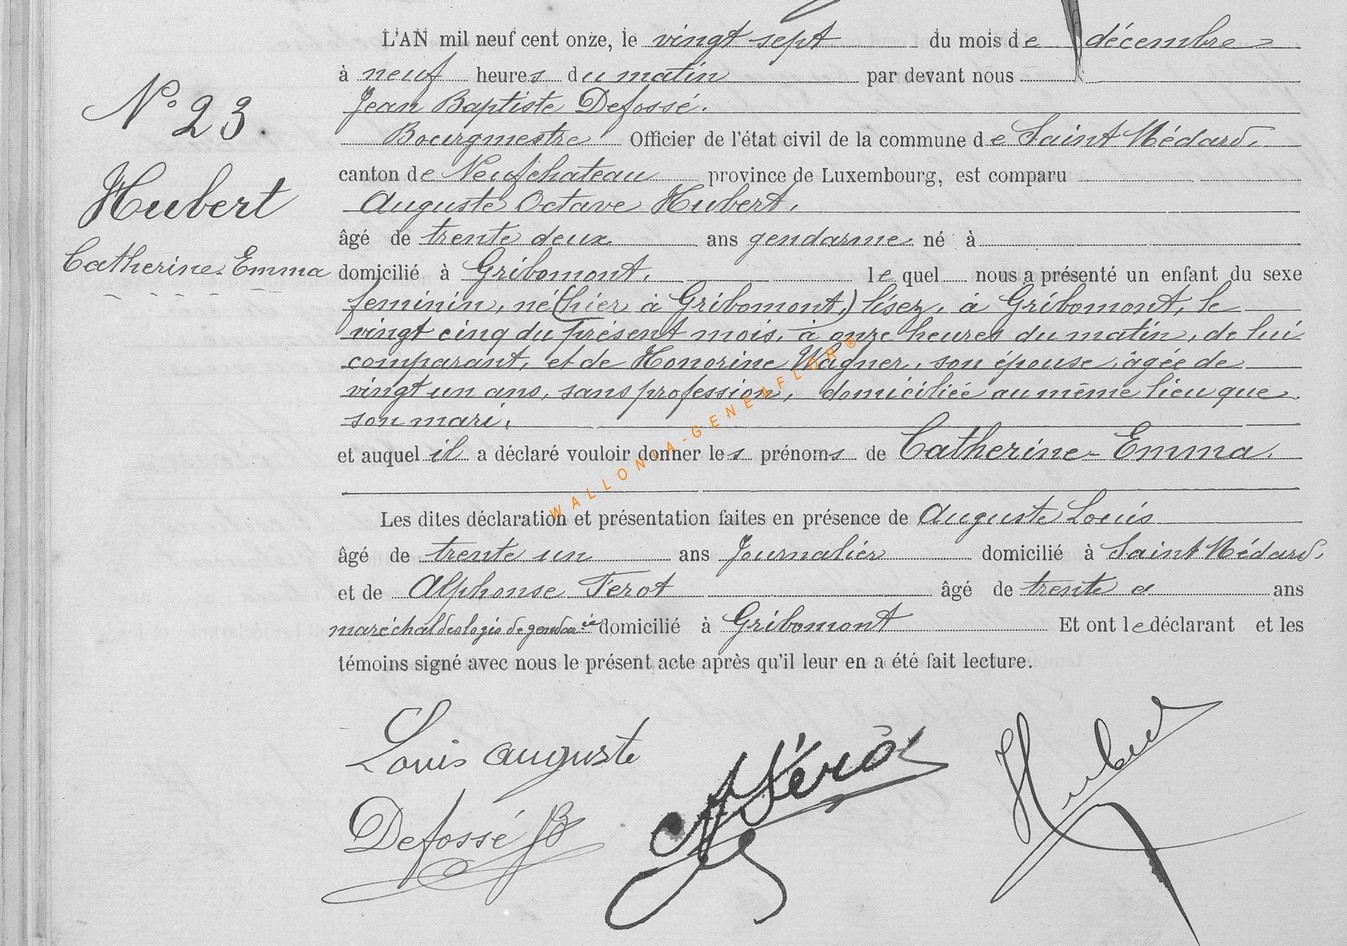 L'AN mil neuf cent onze, le vingt sept du mois de décembre
à neuf heures du matin par devant nous
Jean Baptiste Defossé.
Bourgmestre Officier de l'état civil de la commune de Saint Médard,
canton de Neufchateau province de Luxembourg, est comparu
Auguste Octave Hubert,
âgé de trente deux ans gendarme né à
domicilié à Gribomont, lequel nous a présenté un enfant du sexe
feminin, né (hier à Gribomont,) lisez, à Gribomont, le
vingt cinq du présent mois, à onze heures du matin, de lui
comparant, et de Honorine Wagner, son épouse, âgée de
vingt un ans, sans profession, domiciliée au même lieu que
son mari,
et auquel il a déclaré vouloir donner les prénoms de Catherine-Emma.
Les dites déclaration et présentation faites en présence de Auguste Louis
âgé de trente un ans Journalier domicilié à Saint Médard,
et de Alphonse Ferot âgé de trente ans
maréchal des logis de gendarie domicilié à Gribomont Et ont le déclarant et les
témoins signé avec nous le présent acte après qu'il leur en a été fait lecture.
N° 23.
Hubert
Catherine-Emma
Louis auguste
Defossé JB
A Férot
Hubert
WALLONIA-GENEAFLOR©